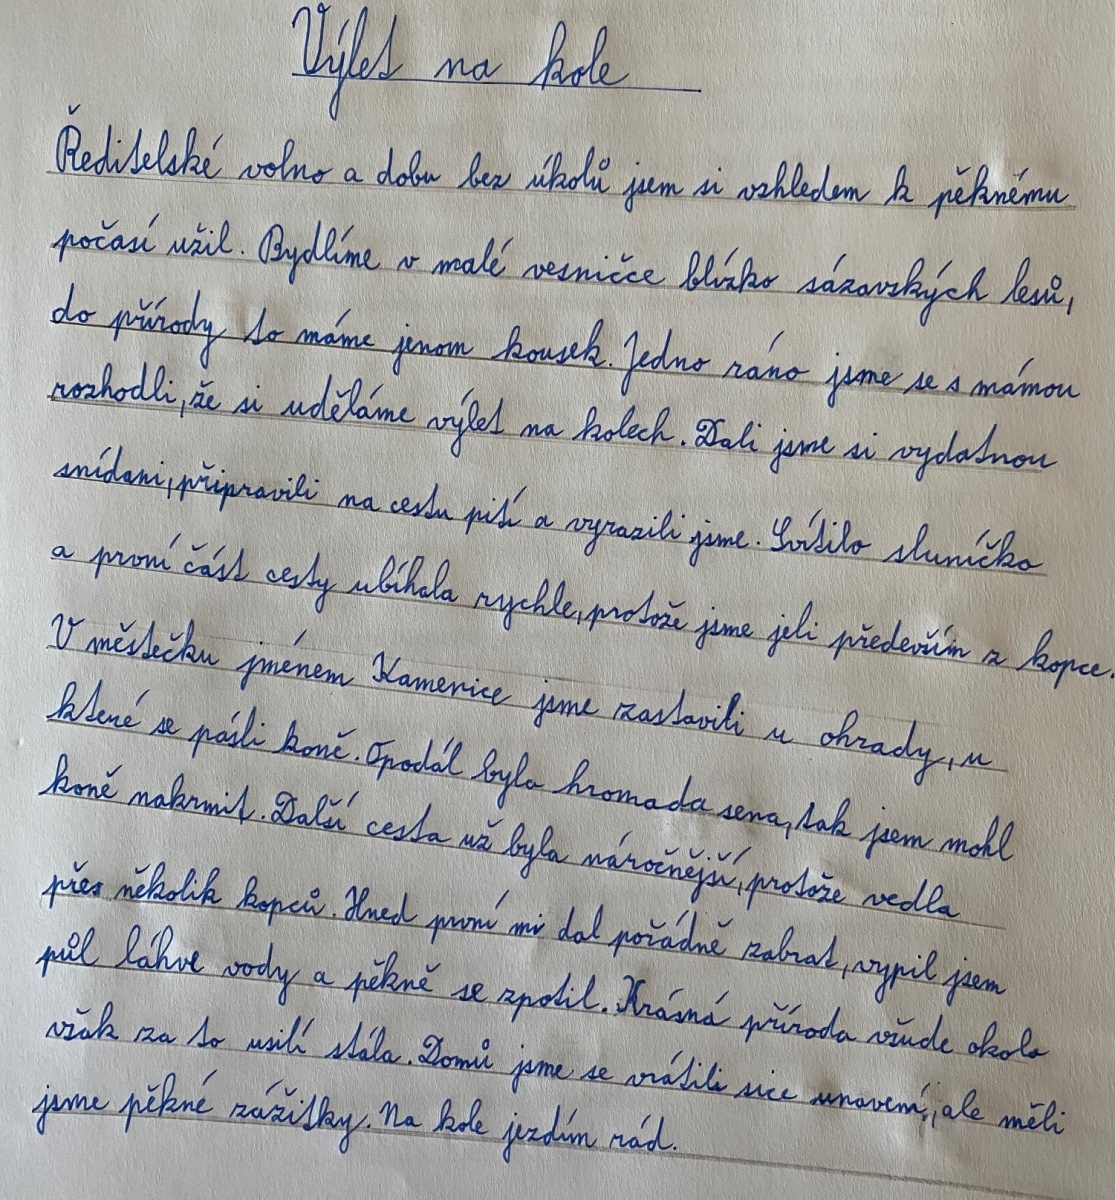 Výlet na kole
Ředitelské volno a dobu bez úkolů jsem si vzhledem k pěknému
počasí užil. Bydlíme v malé vesničce blízko sázavských lesů,
do přírody to máme jenom kousek. Jedno ráno jsme se s mámou
rozhodli, že si uděláme výlet na kolech. Dali jsme si vydatnou
snídani, připravili na cestu pití a vyrazili jsme. Svítilo sluníčko
a první část cesty ubíhala rychle, protože jsme jeli především z kopce.
V městečku jménem Kamenice jsme zastavili u ohrady, u
které se pásli koně. Opodál byla hromada sena, tak jsem mohl
koně nakrmit. Další cesta už byla náročnější, protože vedla
přes několik kopců. Hned první mi dal pořádně zabrat, vypil jsem
půl láhve vody a pěkně se zpotil. Krásná příroda všude okolo
však za to usilí stála. Domů jsme se vrátili sice unavení, ale měli
jsme pěkné zážitky. Na kole jezdím rád.